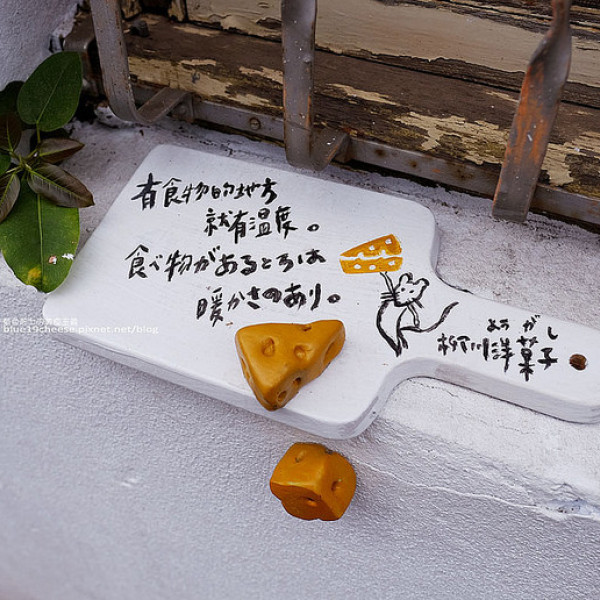 有食物的地方
就有溫度。
食べ物があるところは
暖かさのあり。
ようがし
柳川洋菓子
blue19cheese.pixnet.net/blog